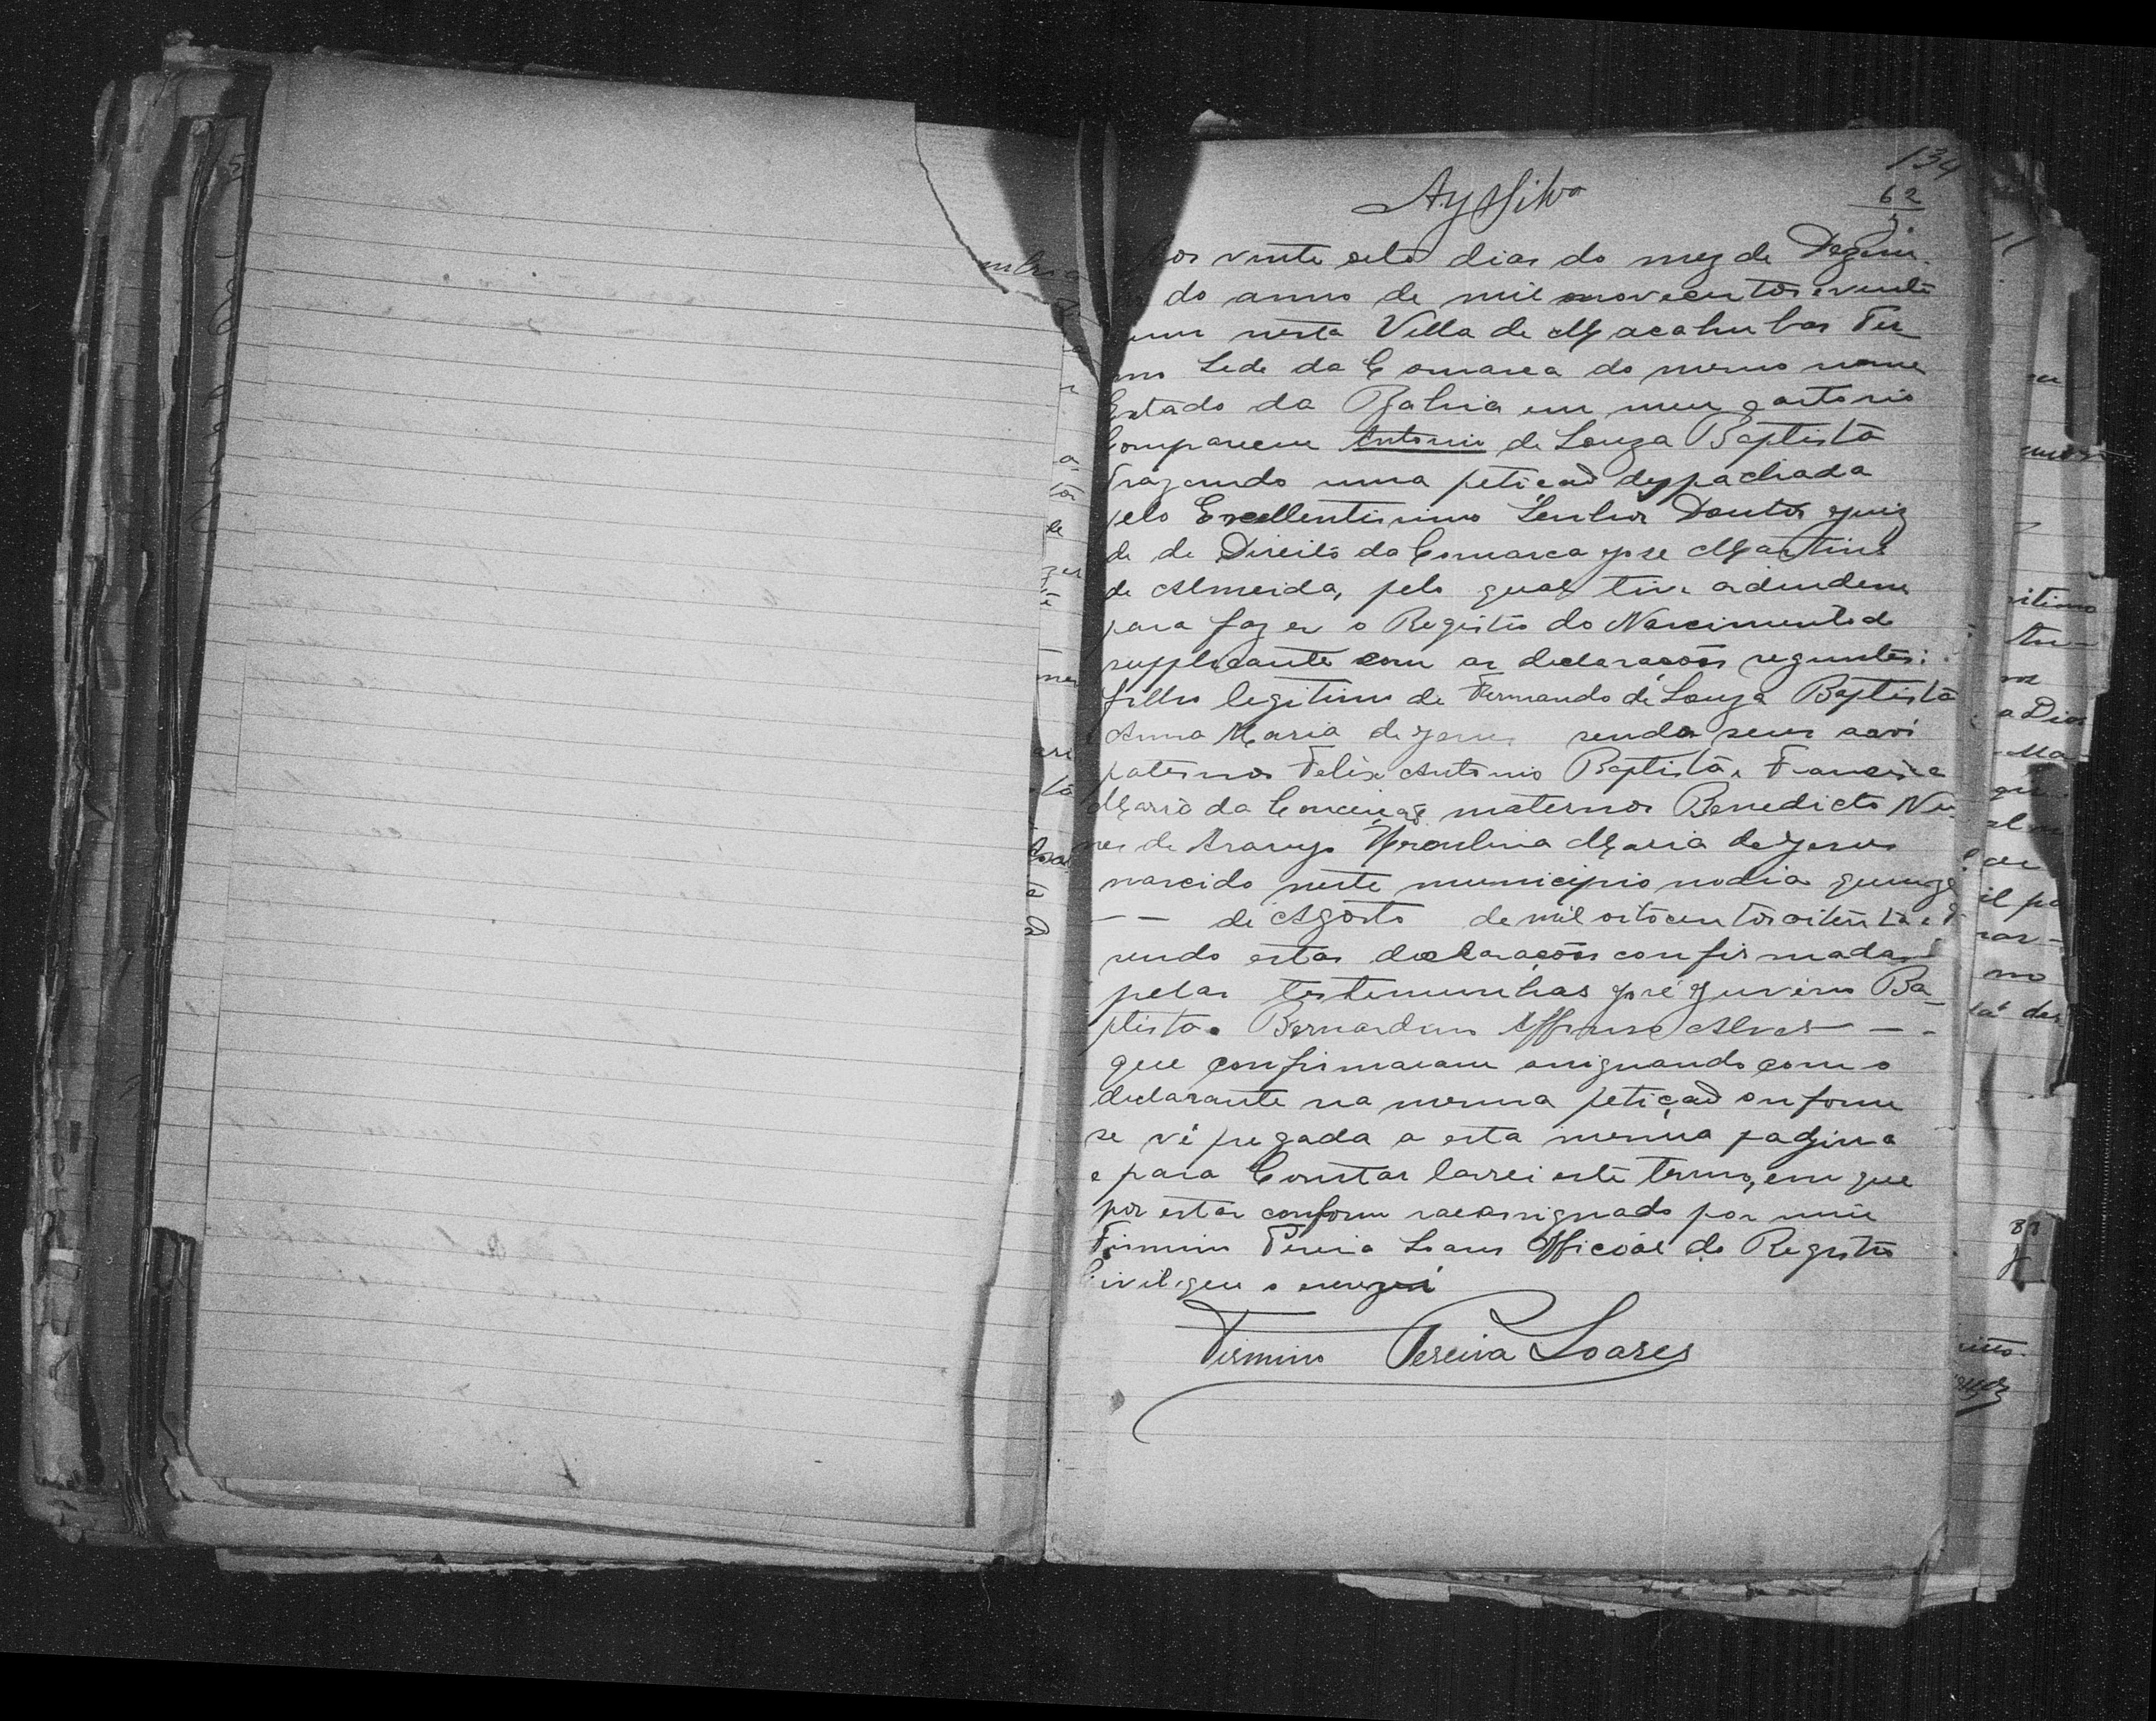 134
AySilva
62
Aos vinte oito dias do mez de Dezem-
do anno de mil novecentos e vinte
um nesta Villa de Macahubas Ter
mo Sede da Comarca do mesmo nome
Estado da Bahia em meu cartorio
Compareceu Antonio de Souza Baptista
trazendo uma petição despachada
pelo Excellentissimo Senhor Doutor Juiz
de de Direito da Comarca Jose Martins
de Almeida, pelo qual tive
para fazer o Registro do Nascimento do
supplicante com as declarações seguintes:
filho legitimo de Fernando de Souza Baptista
Anna Maria de Jesus sendo seus avós
paternos Felix Antonio Baptista e Francisca
Maria da Conceição maternos Benedicto Nu-
nes de Araujo Maria de Jesus
nascido neste municipio no dia quinze
— — de Agosto de mil oitocentos oitenta e
sendo estas declarações confirmadas
pelas testemunhas José Juvino Ba-
ptista e Bernardino Affonso Alves — -
que confirmaram assignando com o
declarante na mesma petição conforme
se vê pregada a esta mesma pagina
e para Constar lavrei este termo, em que
por estar conforme vae assignado por mim
Firmino Pereira Soares Official do Registro
Civil que o escrevi
Firmino Pereira Soares